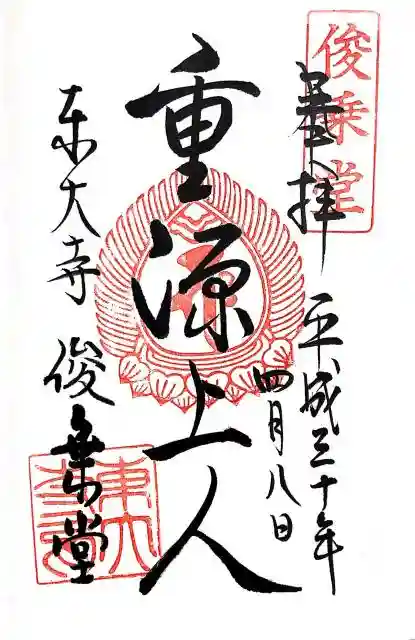 俊乗堂
奉拝
平成三十年
四月八日
重源上人
東大寺
俊乗堂
東大